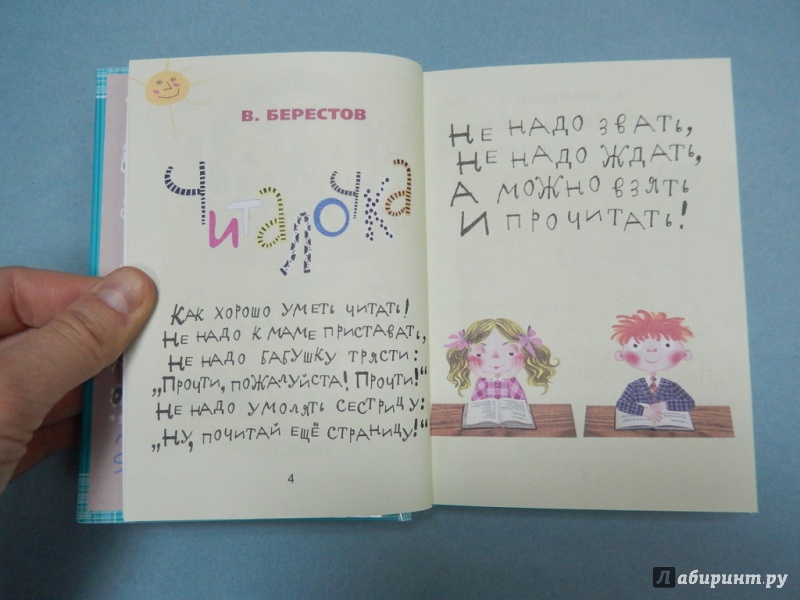 В. БЕРЕСТОВ
Читалочка
Как хорошо уметь читать!
Не надо к маме приставать,
Не надо бабушку трясти:
„Прочти, пожалуйста! Прочти!“
Не надо умолять сестрицу:
„Ну, почитай ещё страницу!“
4
Не надо звать,
Не надо ждать,
А можно взять
И прочитать!
Лабиринт.ру